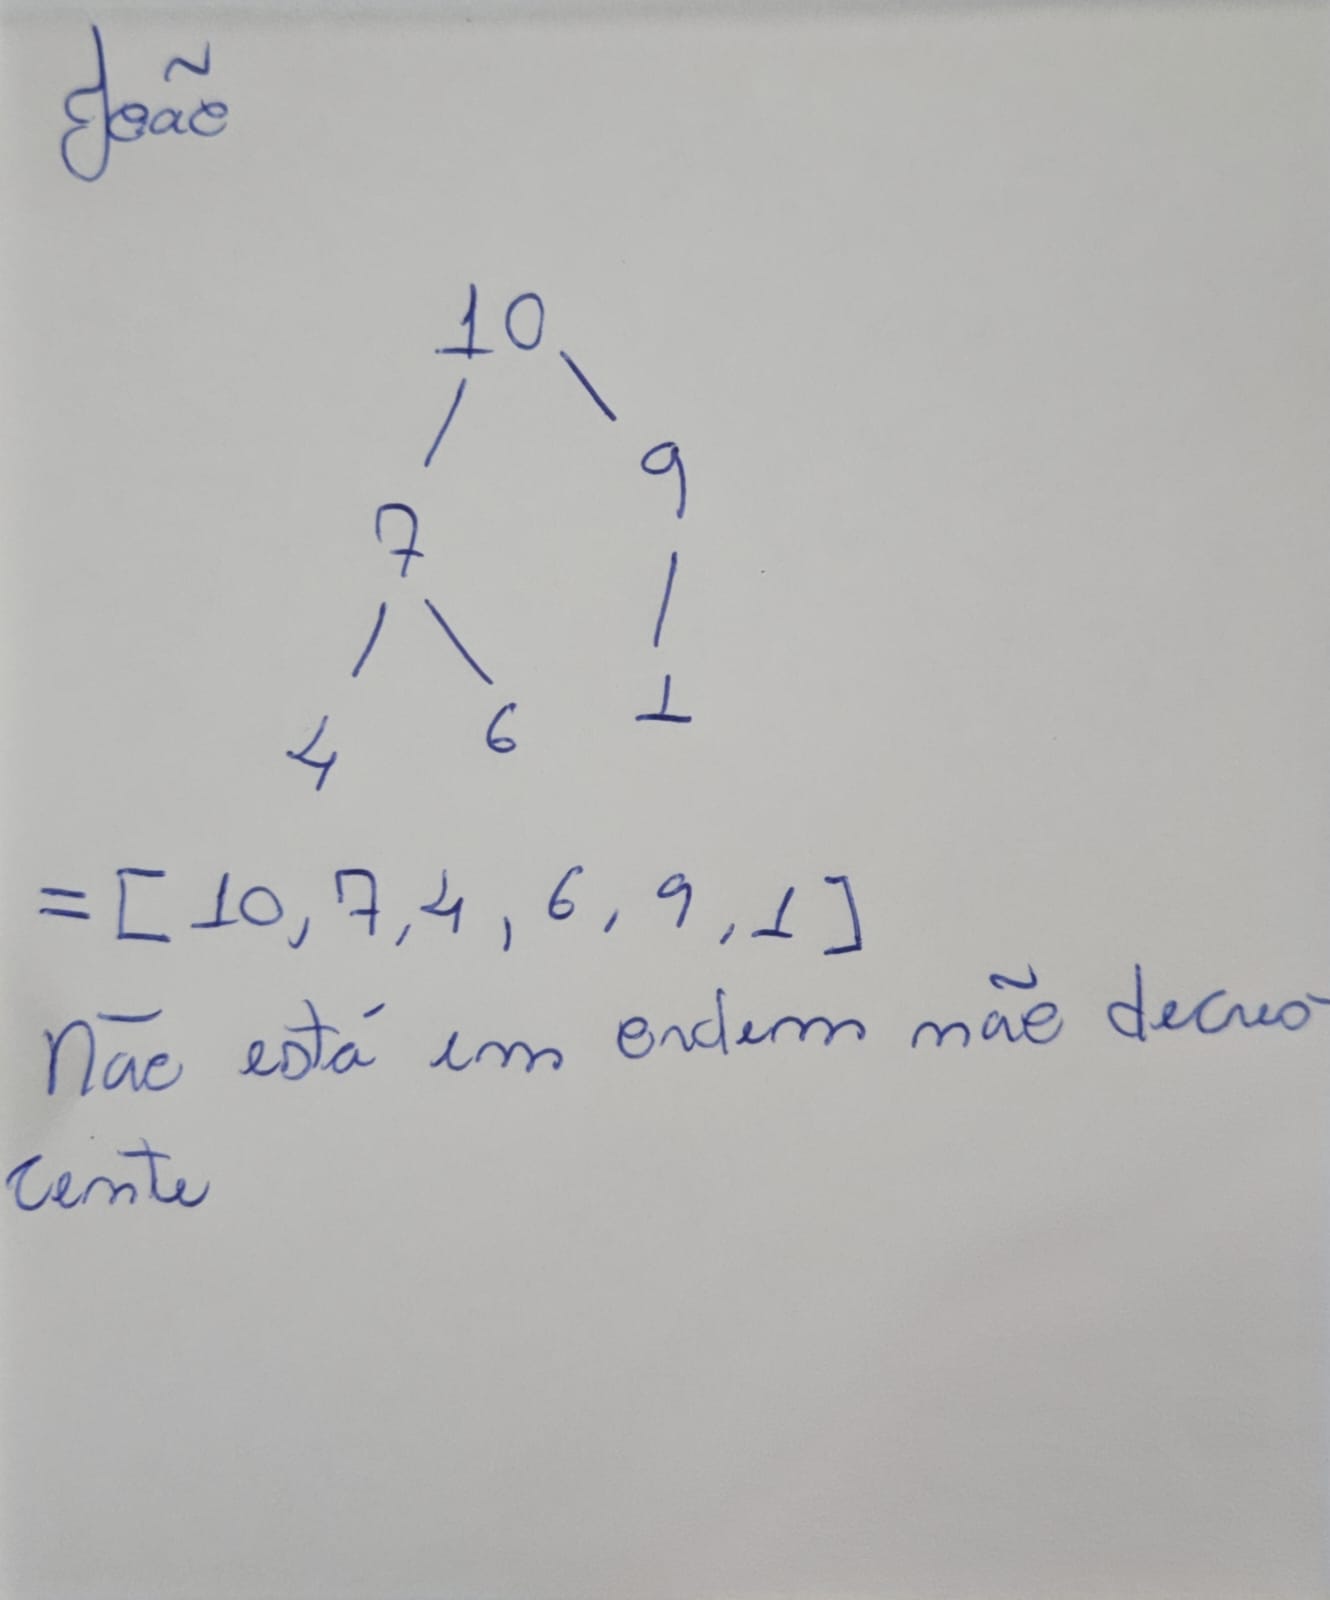 João
10
7 9
4 6 1
= [ 10, 7, 4, 6, 9, 1 ]
Não está em ordem não decres
cente